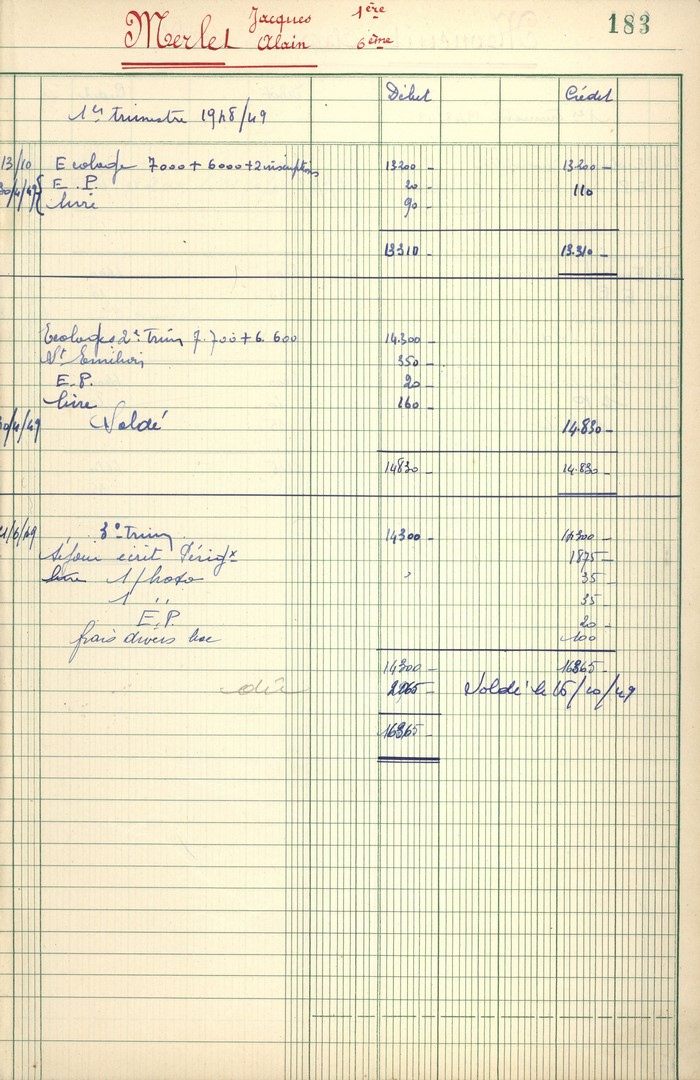 183
Merlet Jacques 1ère
Alain 6ème
Débit Crédit
1er trimestre 1948/49
13/10 Ecolage 7000 + 6000 + 2 inscriptions 13200 - 13200 -
E. P. 20 - 110
livre 90 -
13310 - 13.310 -
Ecolages 2e Trim 7.700 + 6.600 14.300 -
350 -
E.P. 20 -
livre 160 -
Soldé 14.830 -
14830 - 14.830 -
3e Trim 14300 - 14300 -
Séjour écrit Périgx 1875 -
livre 1 photo 35 -
1 ,, 35
E.P. 20 -
frais divers bac 100
14300 - 16365 -
dû 2065 - Soldé le 15/10/49
16365 -